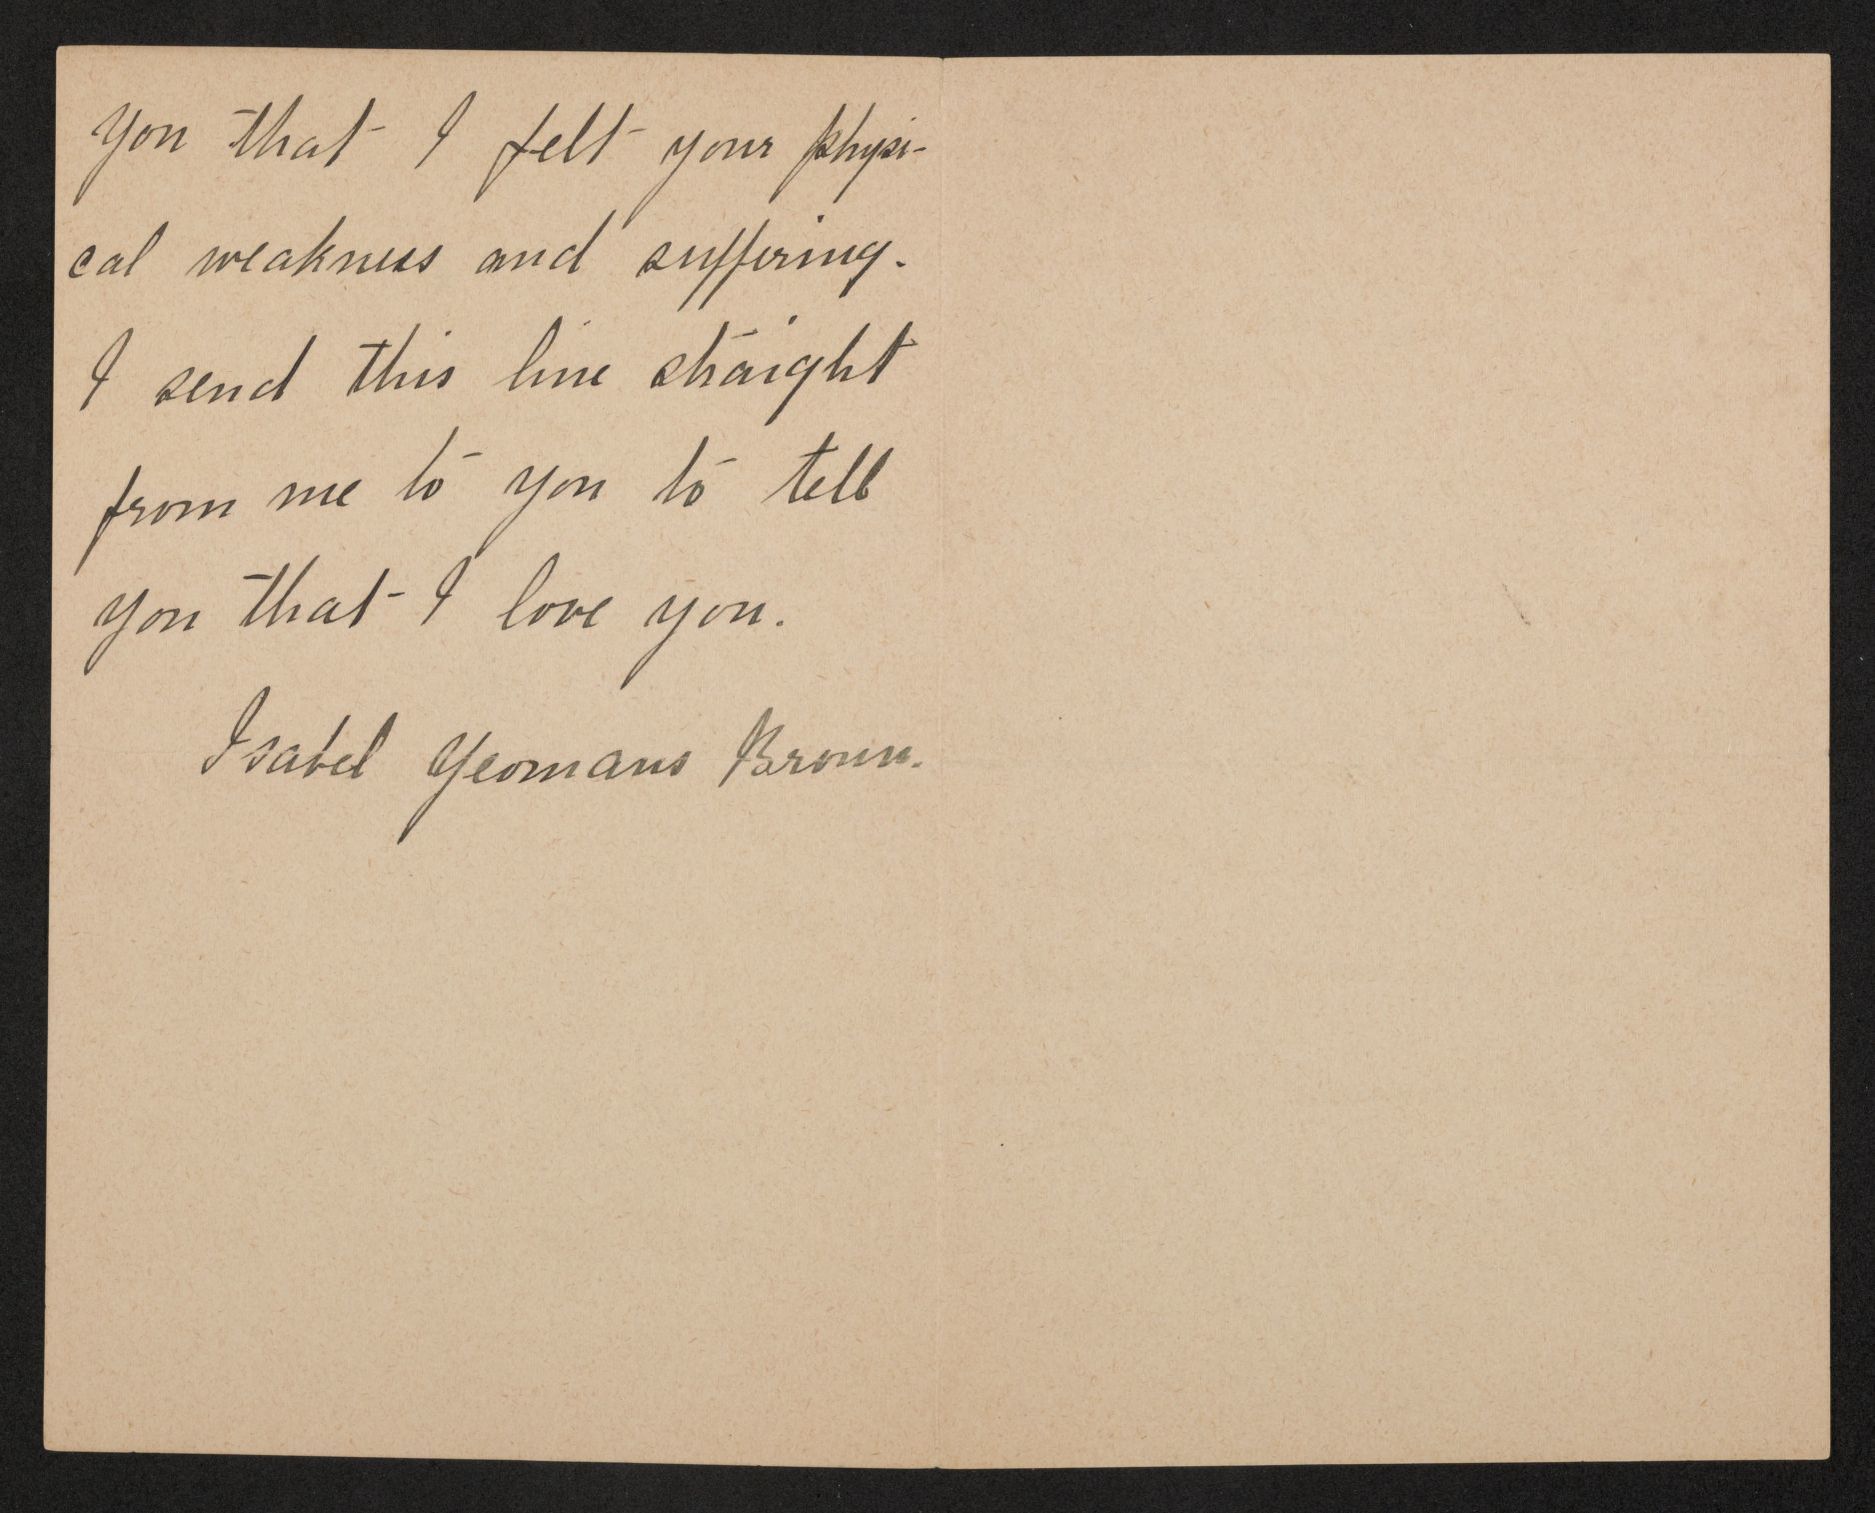 you that I felt your physi-
cal weakness and suffering.
I send this line straight
from me to you to tell
you that I love you.
Isabel Yeomans Brown.